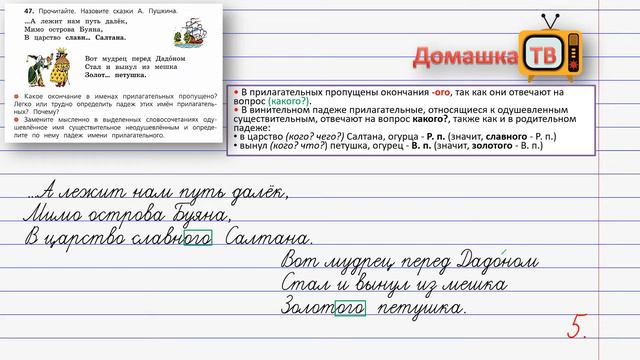 47. Прочитайте. Назовите сказки А. Пушкина.
...А лежит нам путь далёк,
Мимо острова Буяна,
В царство славн... Салтана.
Вот мудрец перед Дадо́ном
Стал и вынул из мешка
Золот... петушка.
● Какое окончание в именах прилагательных пропущено?
Легко или трудно определить падеж этих имён прилагатель-
ных? Почему?
● Замените мысленно в выделенных словосочетаниях оду-
шевлённое имя существительное неодушевлённым и опреде-
лите по нему падеж имени прилагательного.
Домашка ТВ
• В прилагательных пропущены окончания -ого, так как они отвечают на
вопрос (какого?).
• В винительном падеже прилагательные, относящиеся к одушевленным
существительным, отвечают на вопрос какого?, также как и в родительном
падеже:
• в царство (кого? чего?) Салтана, огурца - Р. п. (значит, славного - Р. п.)
• вынул (кого? что?) петушка, огурец - В. п. (значит, золотого - В. п.)
...А лежит нам путь далёк,
Мимо острова Буяна,
В царство славного Салтана.
Вот мудрец перед Дадо́ном
Стал и вынул из мешка
Золотого петушка.
5.